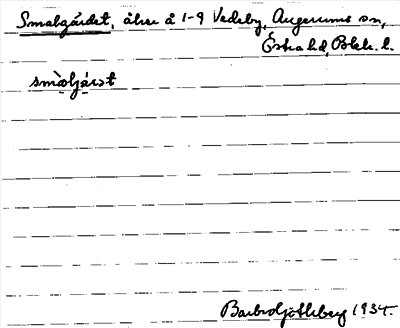 Smalgärdet, åker å 1-9 Vedeby, Augerums sn,
Östra hd, Blek. l.
smàljárət
Barbro Götlberg 1934.